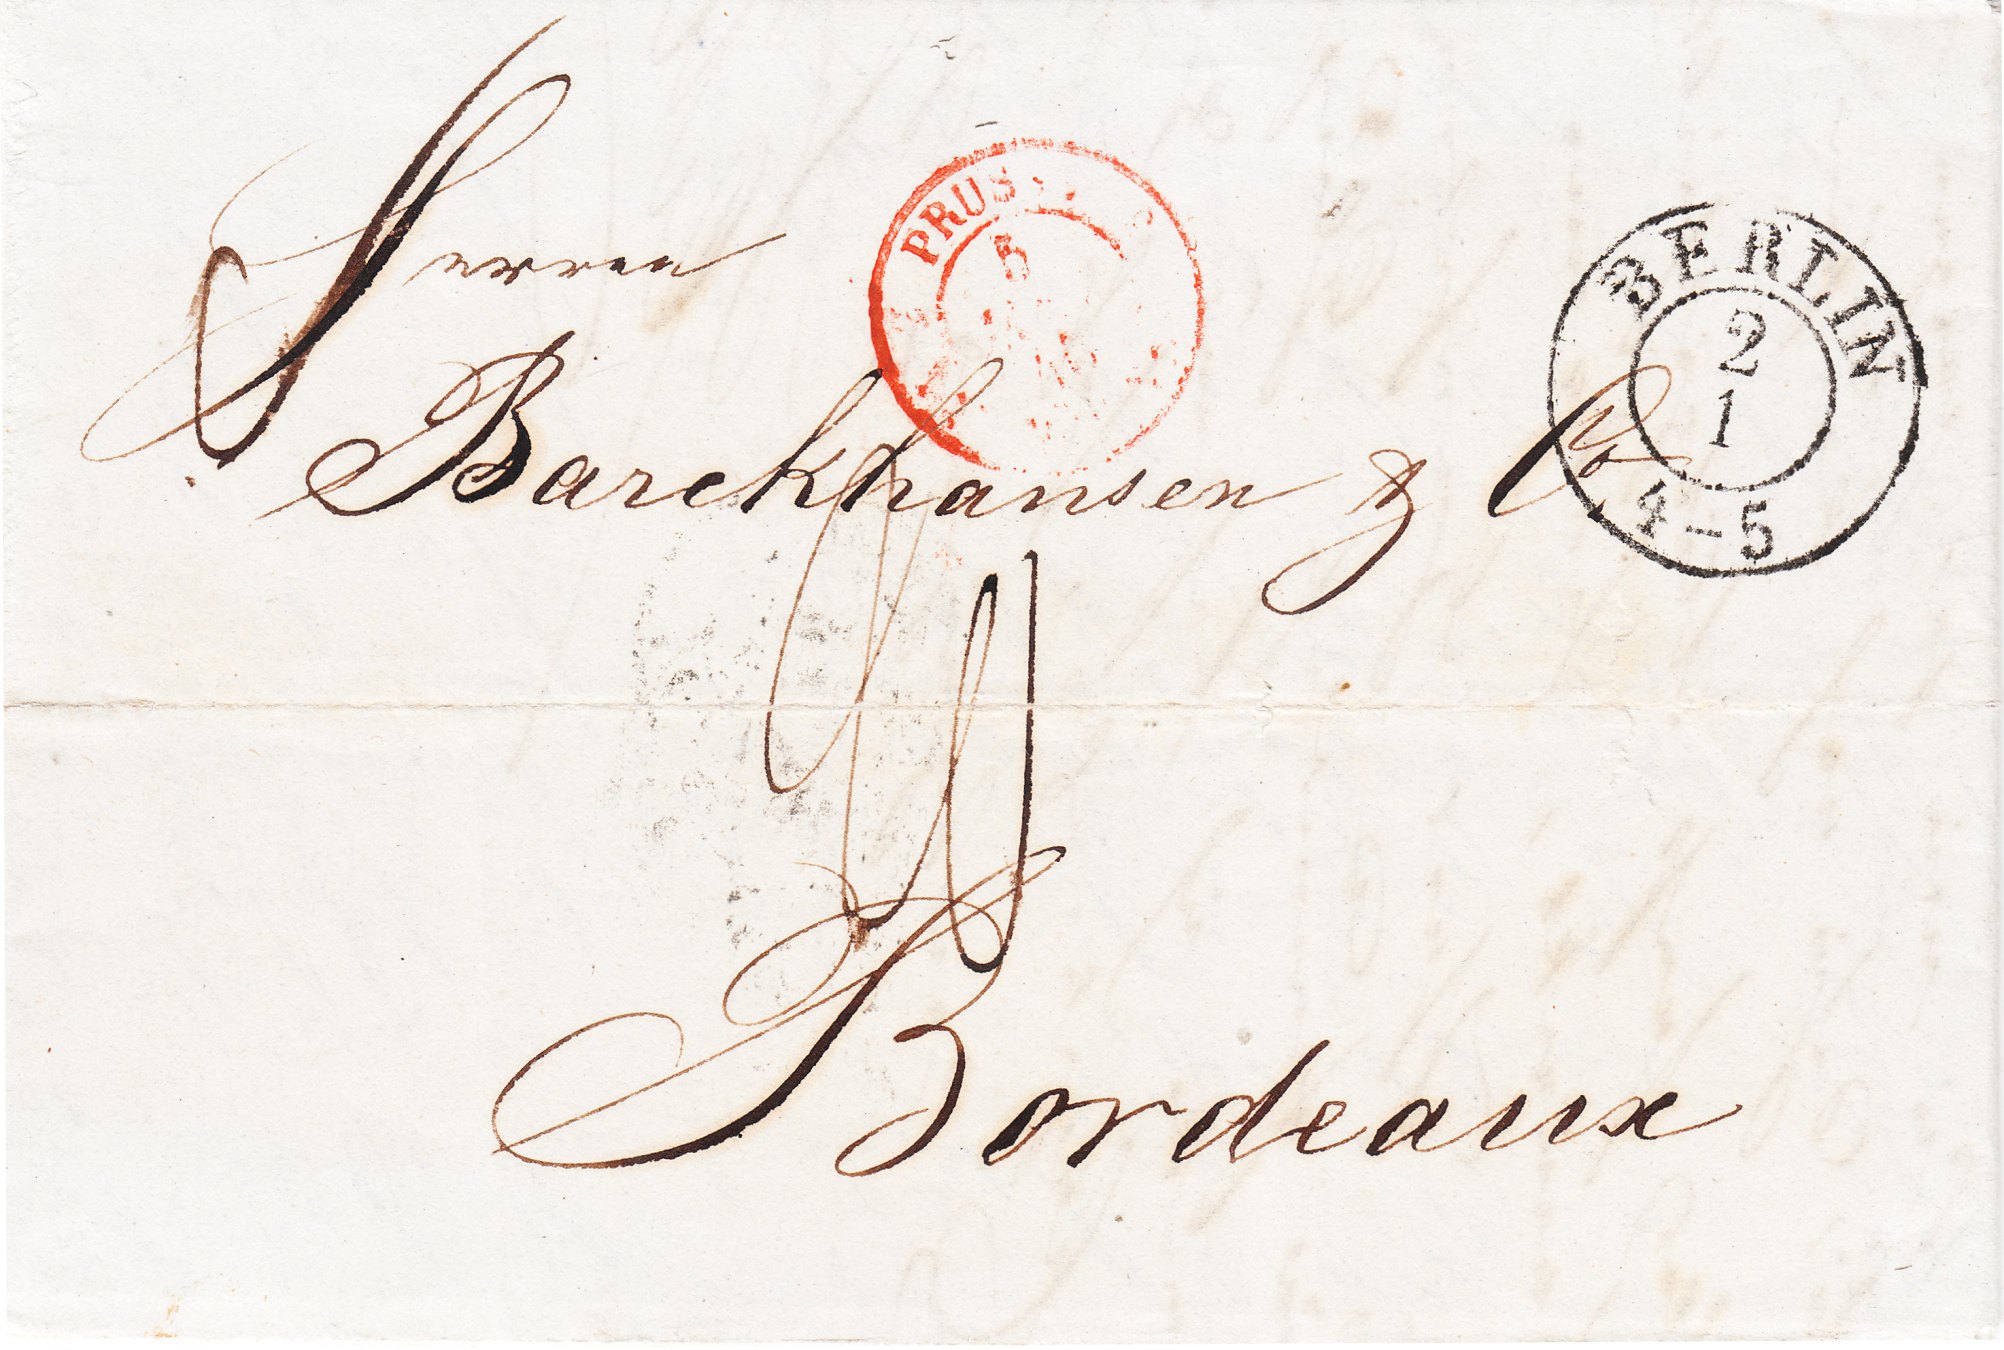 Herren
Barckhausen & Co.
Bordeaux
PRUSSE
5
BERLIN
2
1
4-5